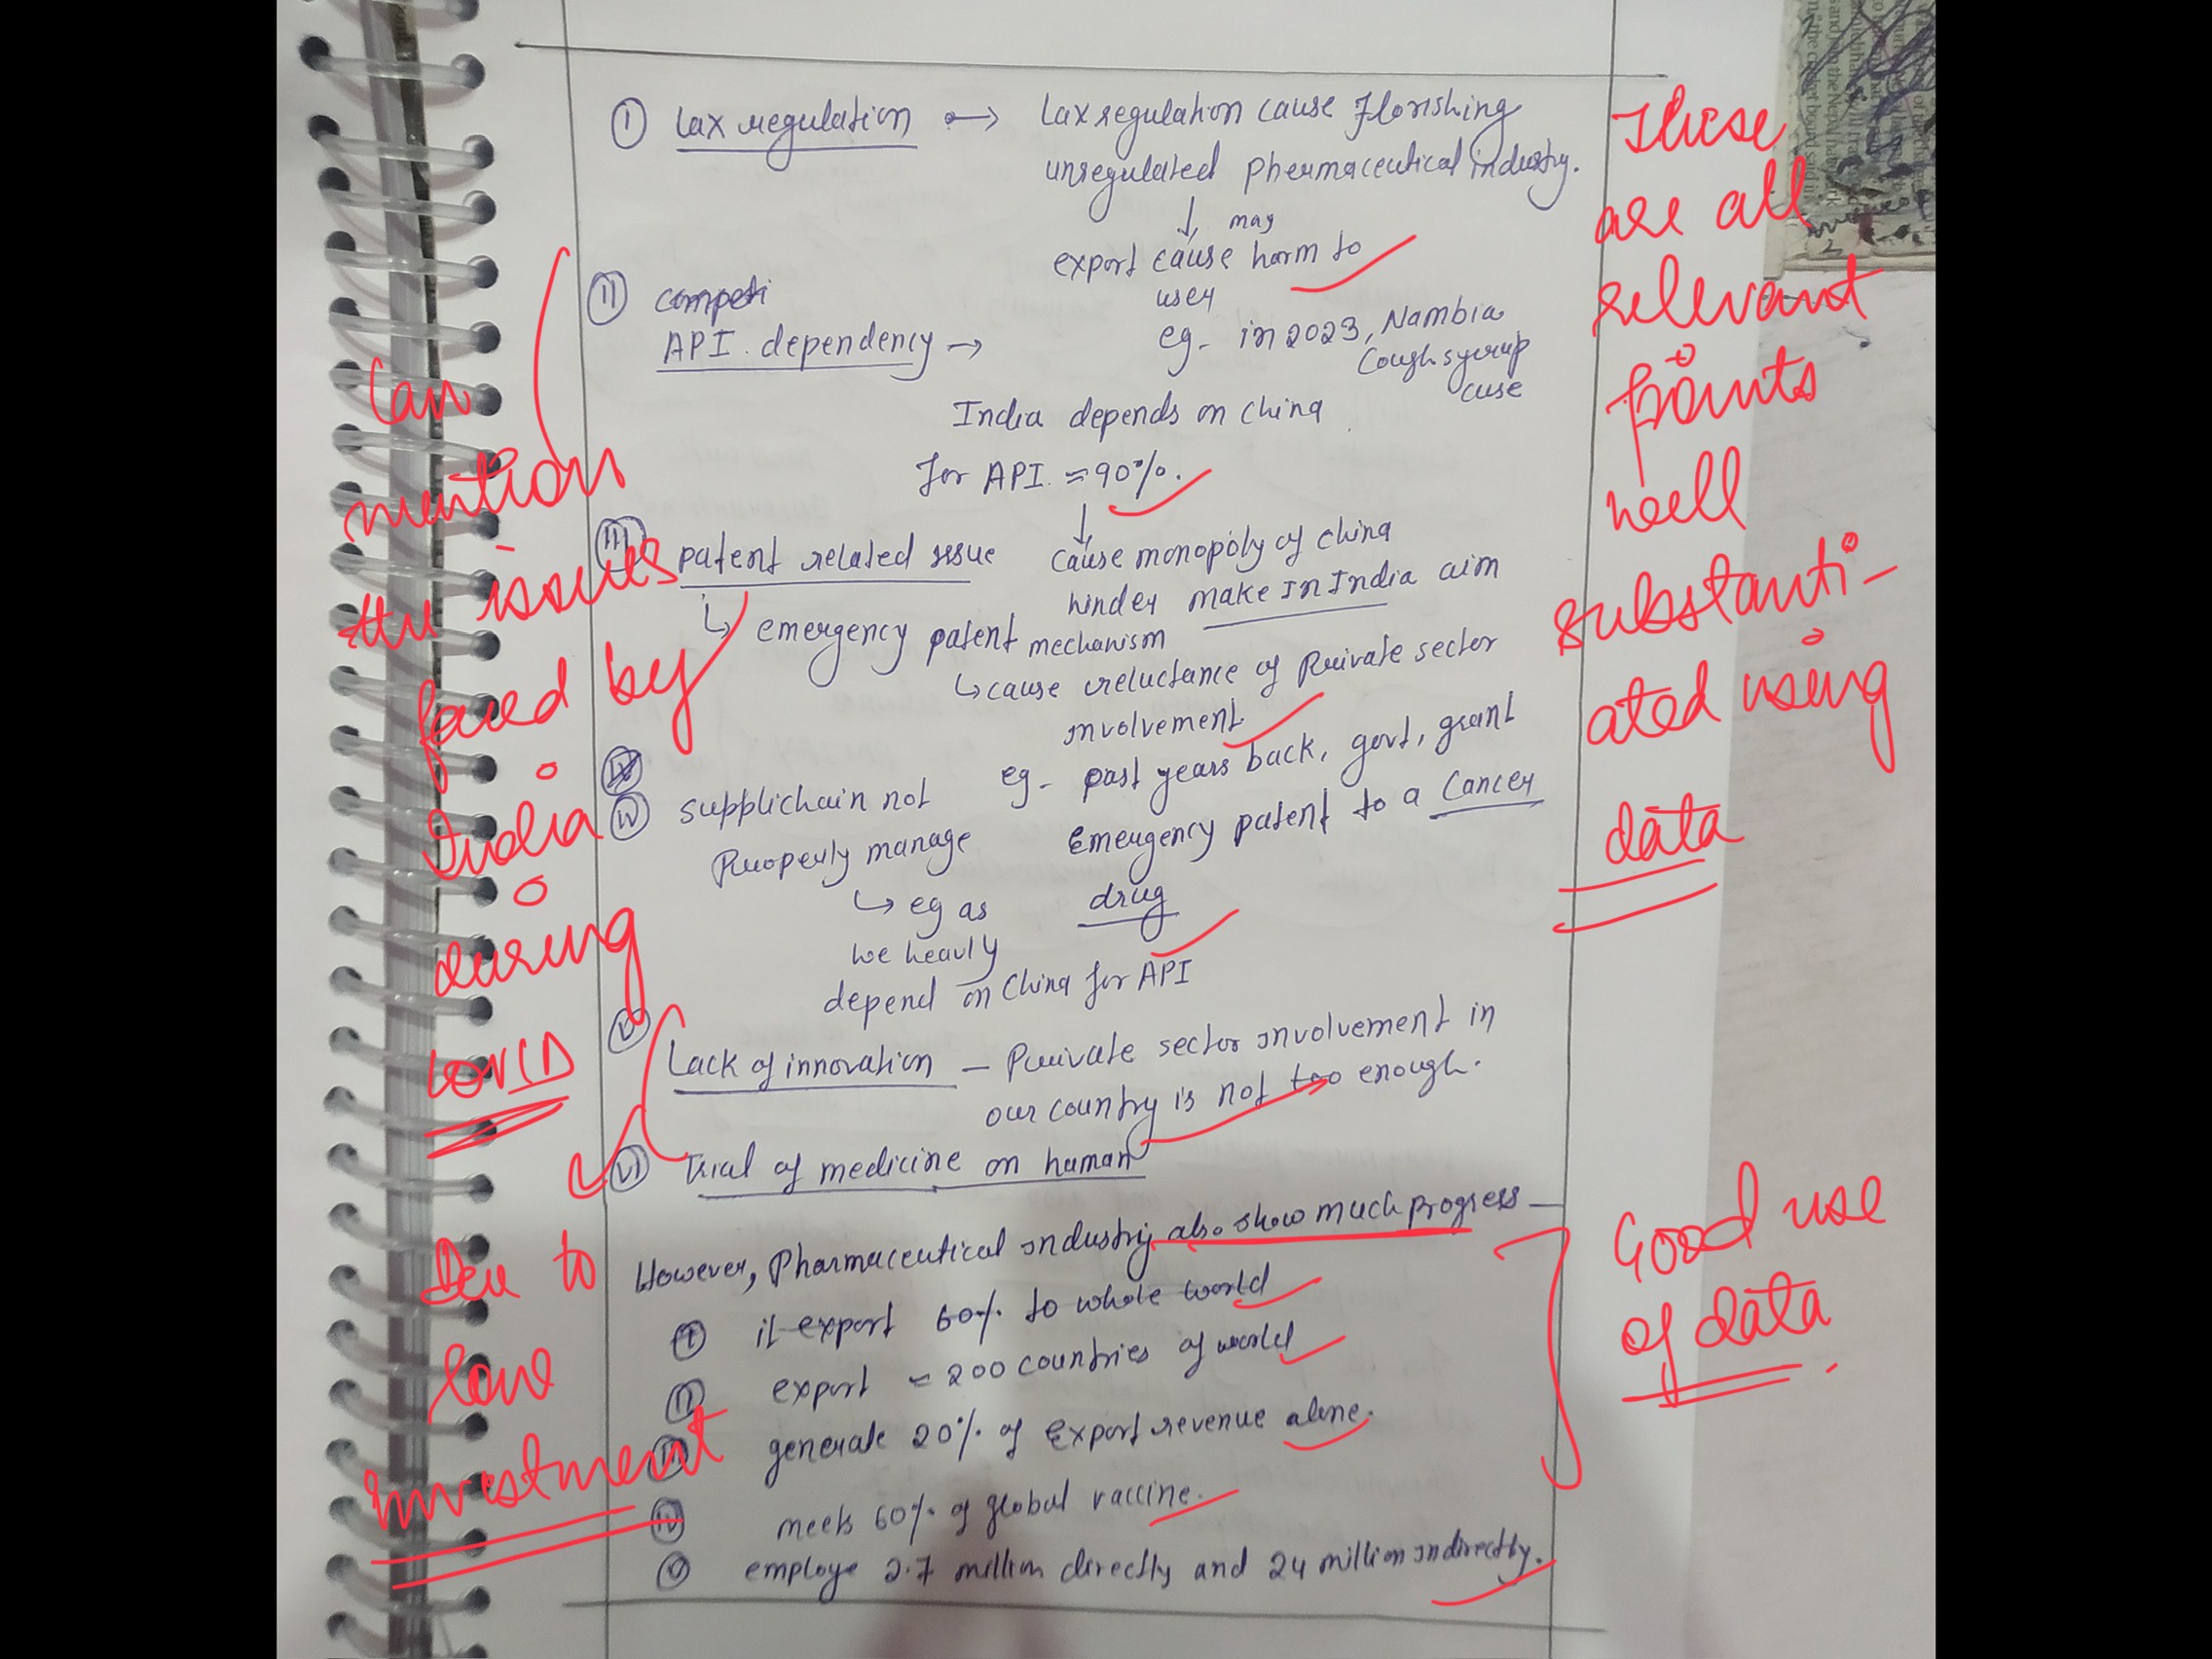 I Lax regulation → Lax regulation cause florishing
unregulated phermaceutical industry.
↓ may
export cause harm to
user
eg- in 2023, Nambia
Cough syrup
case
II competi
API. dependency →
India depends on China
for API. ≈ 90%.
↓
cause monopoly of china
hinder make In India aim
III patent related issue
↳ emergency patent mechanism
↳ cause reluctance of Private sector
involvement
eg- past years back, govt, grant
Emergency patent to a Cancer
drug
IV
IV supplichain not
Properly manage
↳ eg as
we heavly
depend on China for API
V Lack of innovation – Private sector involvement in
our country is not too enough.
VI Trial of medicine on human
However, Pharmaceutical industry also show much progress –
I it export 60% to whole world
II export ≈ 200 countries of world
III generate 20% of Export revenue alone.
IV meets 60% of global vaccine.
V employe 2.7 million directly and 24 million indirectly.
Can
mention
the issues
faced by
India
during
COVID
Due to
low
investment
These
are all
relevant
points
well
substanti-
ated using
data
Good use
of data.